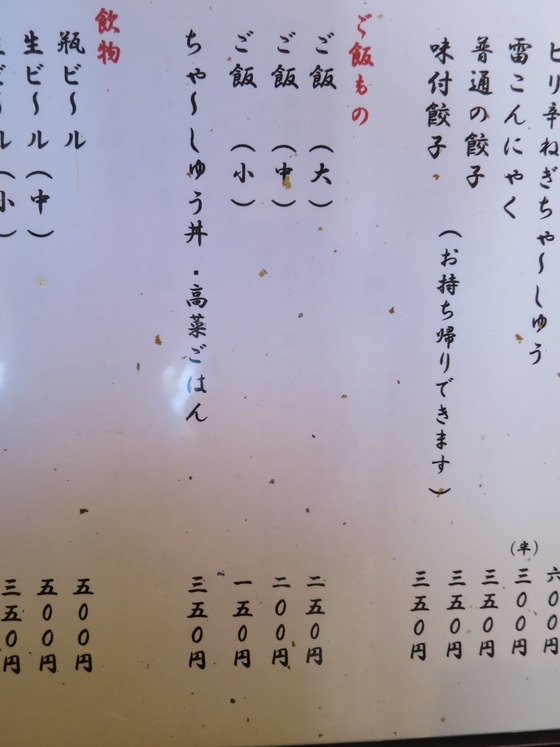 ピリ辛ねぎちゃ〜しゅう
六〇〇円
(半)三〇〇円
雷こんにゃく
三五〇円
普通の餃子
三五〇円
味付餃子 (お持ち帰りできます)
三五〇円
ご飯もの
ご飯 (大)
二五〇円
ご飯 (中)
二〇〇円
ご飯 (小)
一五〇円
ちゃ〜しゅう丼・高菜ごはん
三五〇円
飲物
瓶ビ〜ル
五〇〇円
生ビ〜ル(中)
五〇〇円
生ビ〜ル(小)
三五〇円